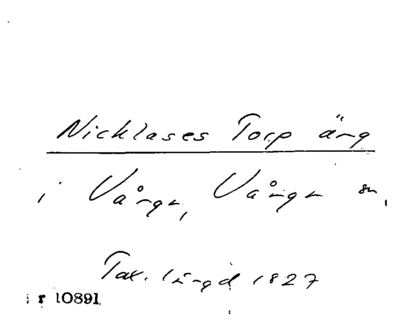 Nicklases Torp äng
i Vånga, Vånga sn.
Tax. längd 1827
r 10891